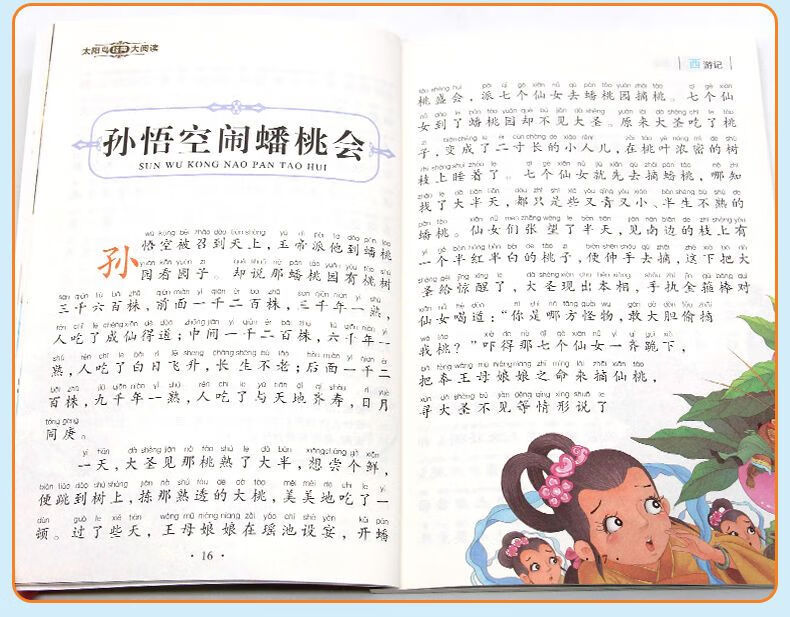 太阳鸟经典大阅读
孙悟空闹蟠桃会
SUN WU KONG NAO PAN TAO HUI
孙悟空被召到天上，玉帝派他到蟠桃
园看园子。却说那蟠桃园有桃树
三千六百株，前面一千二百株，三千年一熟，
人吃了成仙得道；中间一千二百株，六千年一
熟，人吃了白日飞升，长生不老；后面一千二
百株，九千年一熟，人吃了与天地齐寿，日月
同庚。
一天，大圣见那桃熟了大半，想尝个鲜，
便跳到树上，拣那熟透的大桃，美美地吃了一
顿。过了些天，王母娘娘在瑶池设宴，开蟠
·16·
西游记
桃盛会，派七个仙女去蟠桃园摘桃。七个仙
女到了蟠桃园却不见大圣。原来大圣吃了桃
子，变成了二寸长的小人儿，在桃叶浓密的树
枝上睡着了。七个仙女就先去摘蟠桃，哪知
找了大半天，都只是些又青又小、半生不熟的
蟠桃。仙女们张望了半天，见南边的枝上有
一个半红半白的桃子，便伸手去摘，这下把大
圣给惊醒了，大圣现出本相，手执金箍棒对
仙女喝道：“你是哪方怪物，敢大胆偷摘
我桃？”吓得那七个仙女一齐跪下，
把奉王母娘娘之命来摘仙桃，
寻大圣不见等情形说了